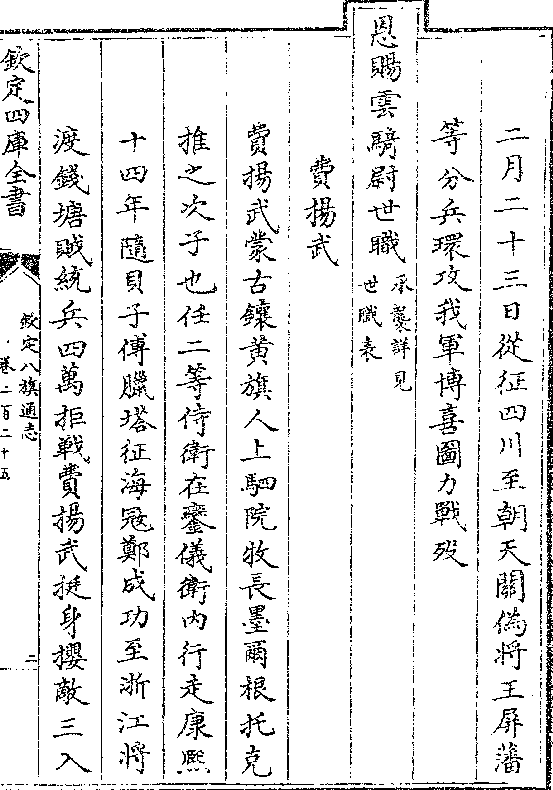 二月二十三日從征四川至朝天關偽將王屏藩
等分兵環攻我軍博喜圖力戰歿
恩賜雲騎尉世職承襲詳見
世職表
費揚武
費揚武蒙古鑲黃旗人上駟院牧長墨爾根托克
推之次子也任二等侍衛在鑾儀衛內行走康熙
十四年隨貝子傅臘塔征海冦鄭成功至浙江將
渡錢塘賊統兵四萬拒戰費揚武挺身攖敵三入
欽定四庫全書
欽定八旗通志
卷二百二十五
二